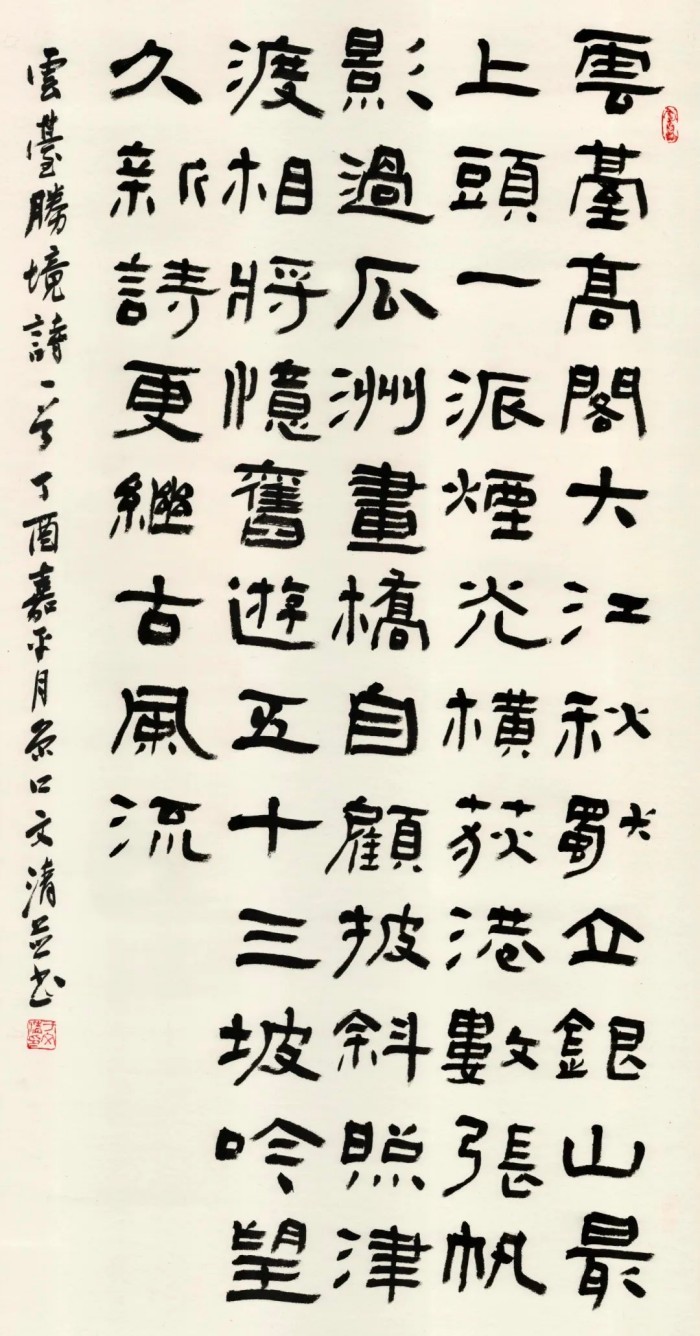 雲臺高閣大江秋獨立銀山最
上頭一派煙光橫荻港數張帆
影過瓜洲畫橋自顧披斜照津
渡相將憶舊遊五十三坡吟望
久新詩更繼古風流
雲臺勝境詩一首丁酉嘉平月京口文清並書